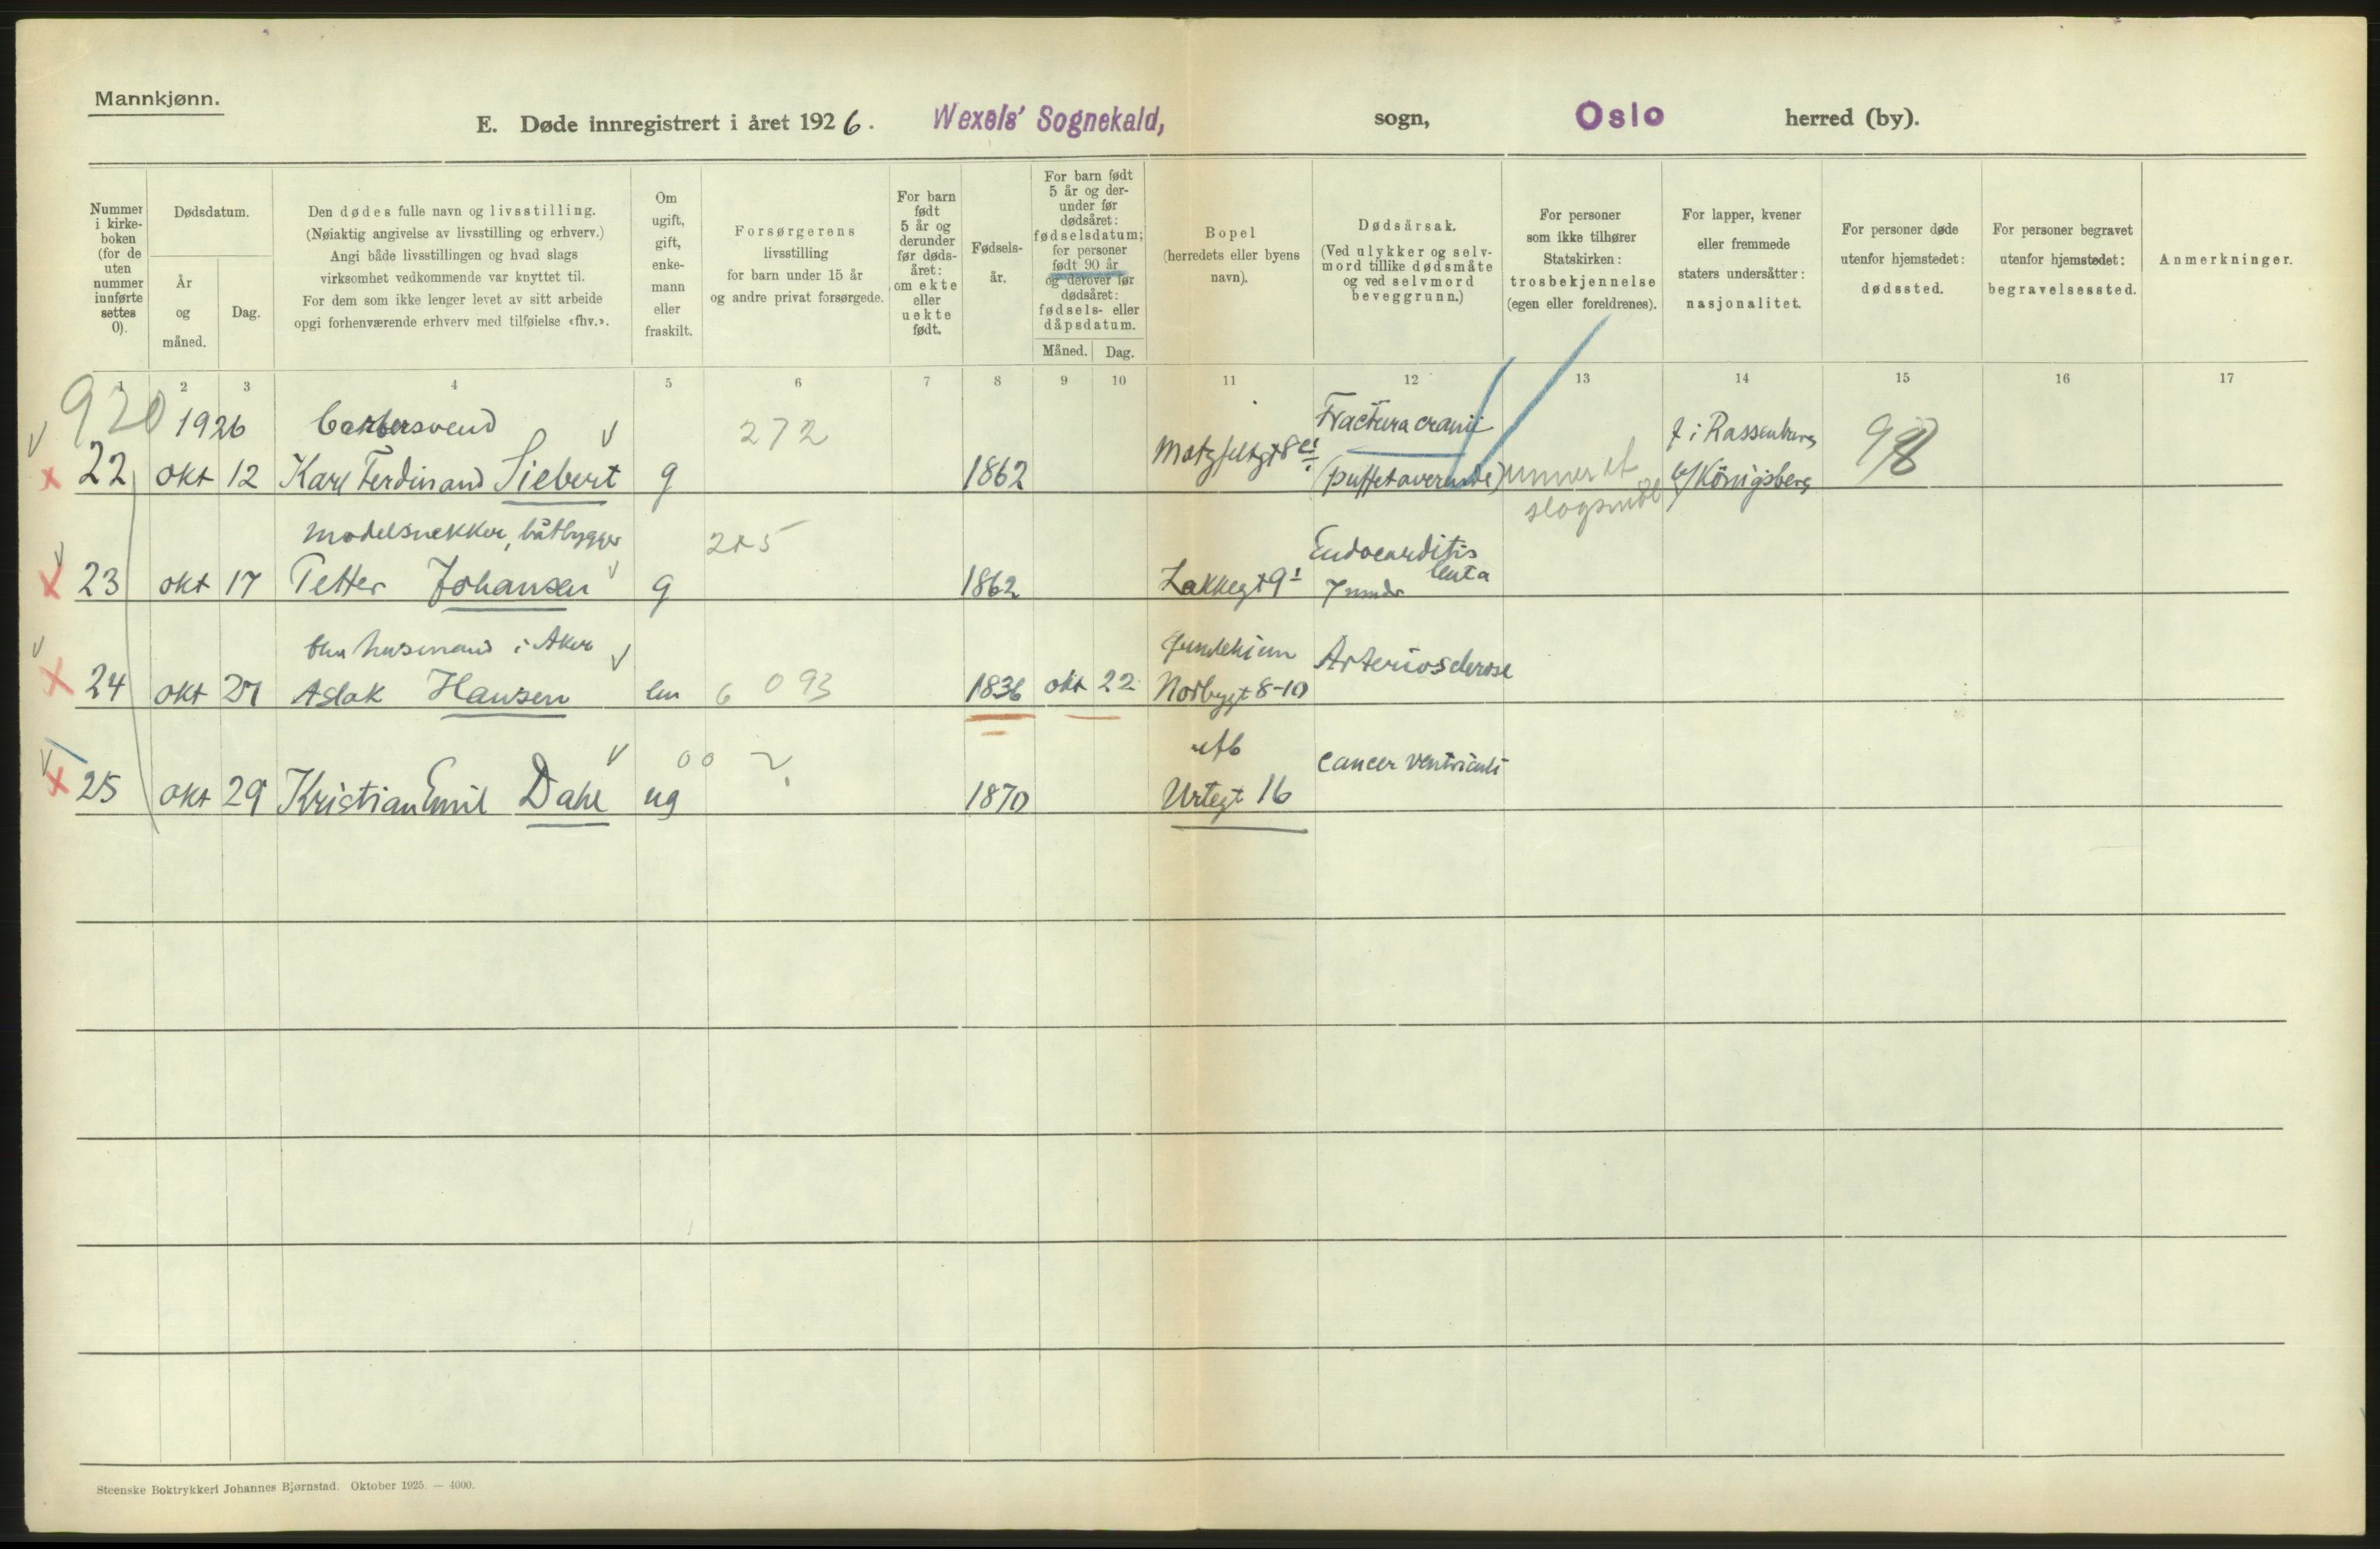 Mannkjønn.
E. Døde innregistrert i året 1926. Wexels' Sognekald, sogn, Oslo herred (by).
Nummer
i kirke-
boken
(for de
uten
nummer
innførte
settes
0).
Dødsdatum.
År
og
måned.
Dag.
Den dødes fulle navn og livsstilling.
(Nøiaktig angivelse av livsstilling og erhverv.)
Angi både livsstillingen og hvad slags
virksomhet vedkommende var knyttet til.
For dem som ikke lenger levet av sitt arbeide
opgi forhenværende erhverv med tilføielse «fhv.».
Om
ugift,
gift,
enke-
mann
eller
fraskilt.
Forsørgerens
livsstilling
for barn under 15 år
og andre privat forsørgede.
For barn
født
5 år og
derunder
før døds-
året:
om ekte
eller
uekte
født.
Fødsels-
år.
For barn født
5 år og der-
under før
dødsåret:
fødselsdatum;
for personer
født 90 år
og derover før
dødsåret:
fødsels- eller
dåpsdatum.
Måned. Dag.
Bopel
(herredets eller byens
navn).
Dødsårsak.
(Ved ulykker og selv-
mord tillike dødsmåte
og ved selvmord
beveggrunn.)
For personer
som ikke tilhører
Statskirken:
trosbekjennelse
(egen eller foreldrenes).
For lapper, kvener
eller fremmede
staters undersåtter:
nasjonalitet.
For personer døde
utenfor hjemstedet:
dødssted.
For personer begravet
utenfor hjemstedet:
begravelsessted.
Anmerkninger.
1 2 3 4 5 6 7 8 9 10 11 12 13 14 15 16 17
920 1926 Barbersvend 272 Fractura cranii f i Rassenburg
22 okt 12 Karl Ferdinand Siebert g 1862 Motzfeltgt 8 (puffet averende) b/Königsberg 98
slagsmål
Modelsnekker, båtbygger 245 Endocarditis
lenta
23 okt 17 Petter Johansen g 1862 Lakkegt 9 7 mndr
fhv husmand i Aker Arteriosclerose
24 okt 27 Aslak Hansen em 6 093 1836 okt 22 Norbygt 8-10
00 ? cancer ventriculi
25 okt 29 Kristian Emil Dahl ug 1870 Urtegt 16
Steenske Boktrykkeri Johannes Bjørnstad. Oktober 1925. — 4000.